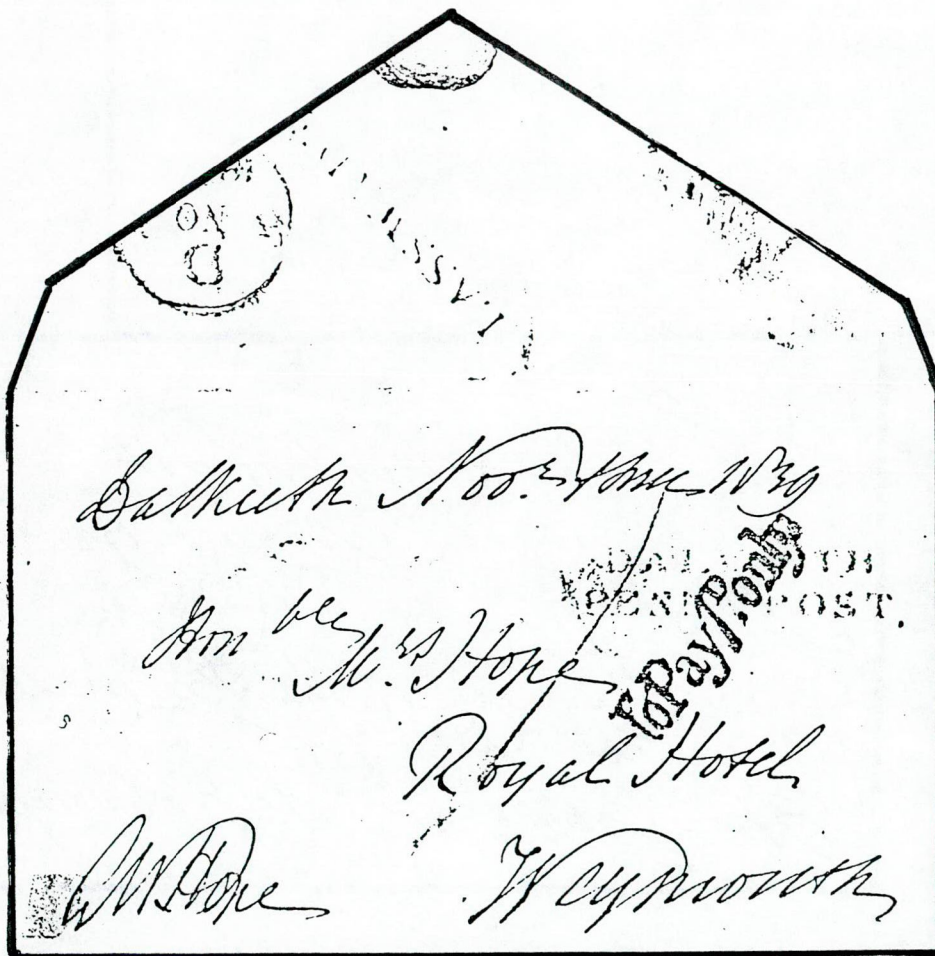 Dalkeith Novr. three 1839
DALKEITH
PENNY POST.
To Pay 1d. only
Honble Mrs Hope
Royal Hotel
GWHope Weymouth